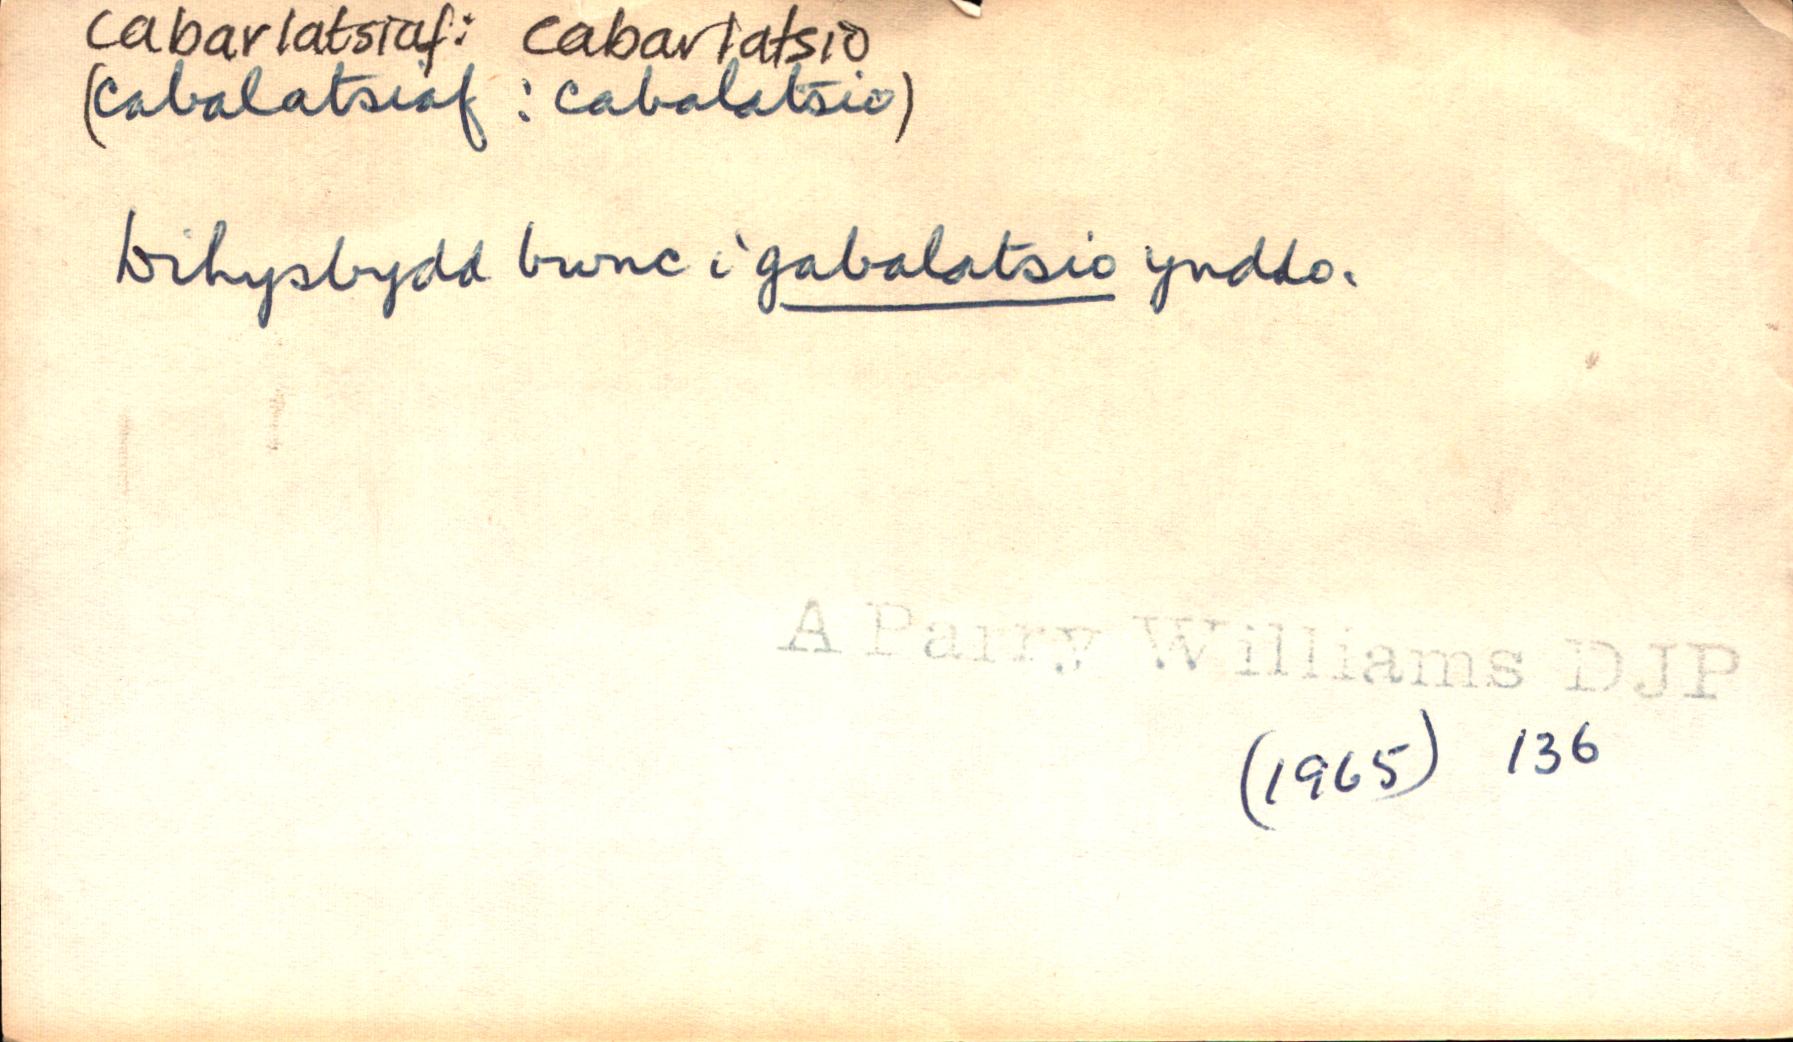 cabarlatsiaf: cabarlatsio
(cabalatsiaf : cabalatsio)
Dihysbydd bwnc i gabalatsio ynddo.
A Parry Williams DJP
(1965) 136